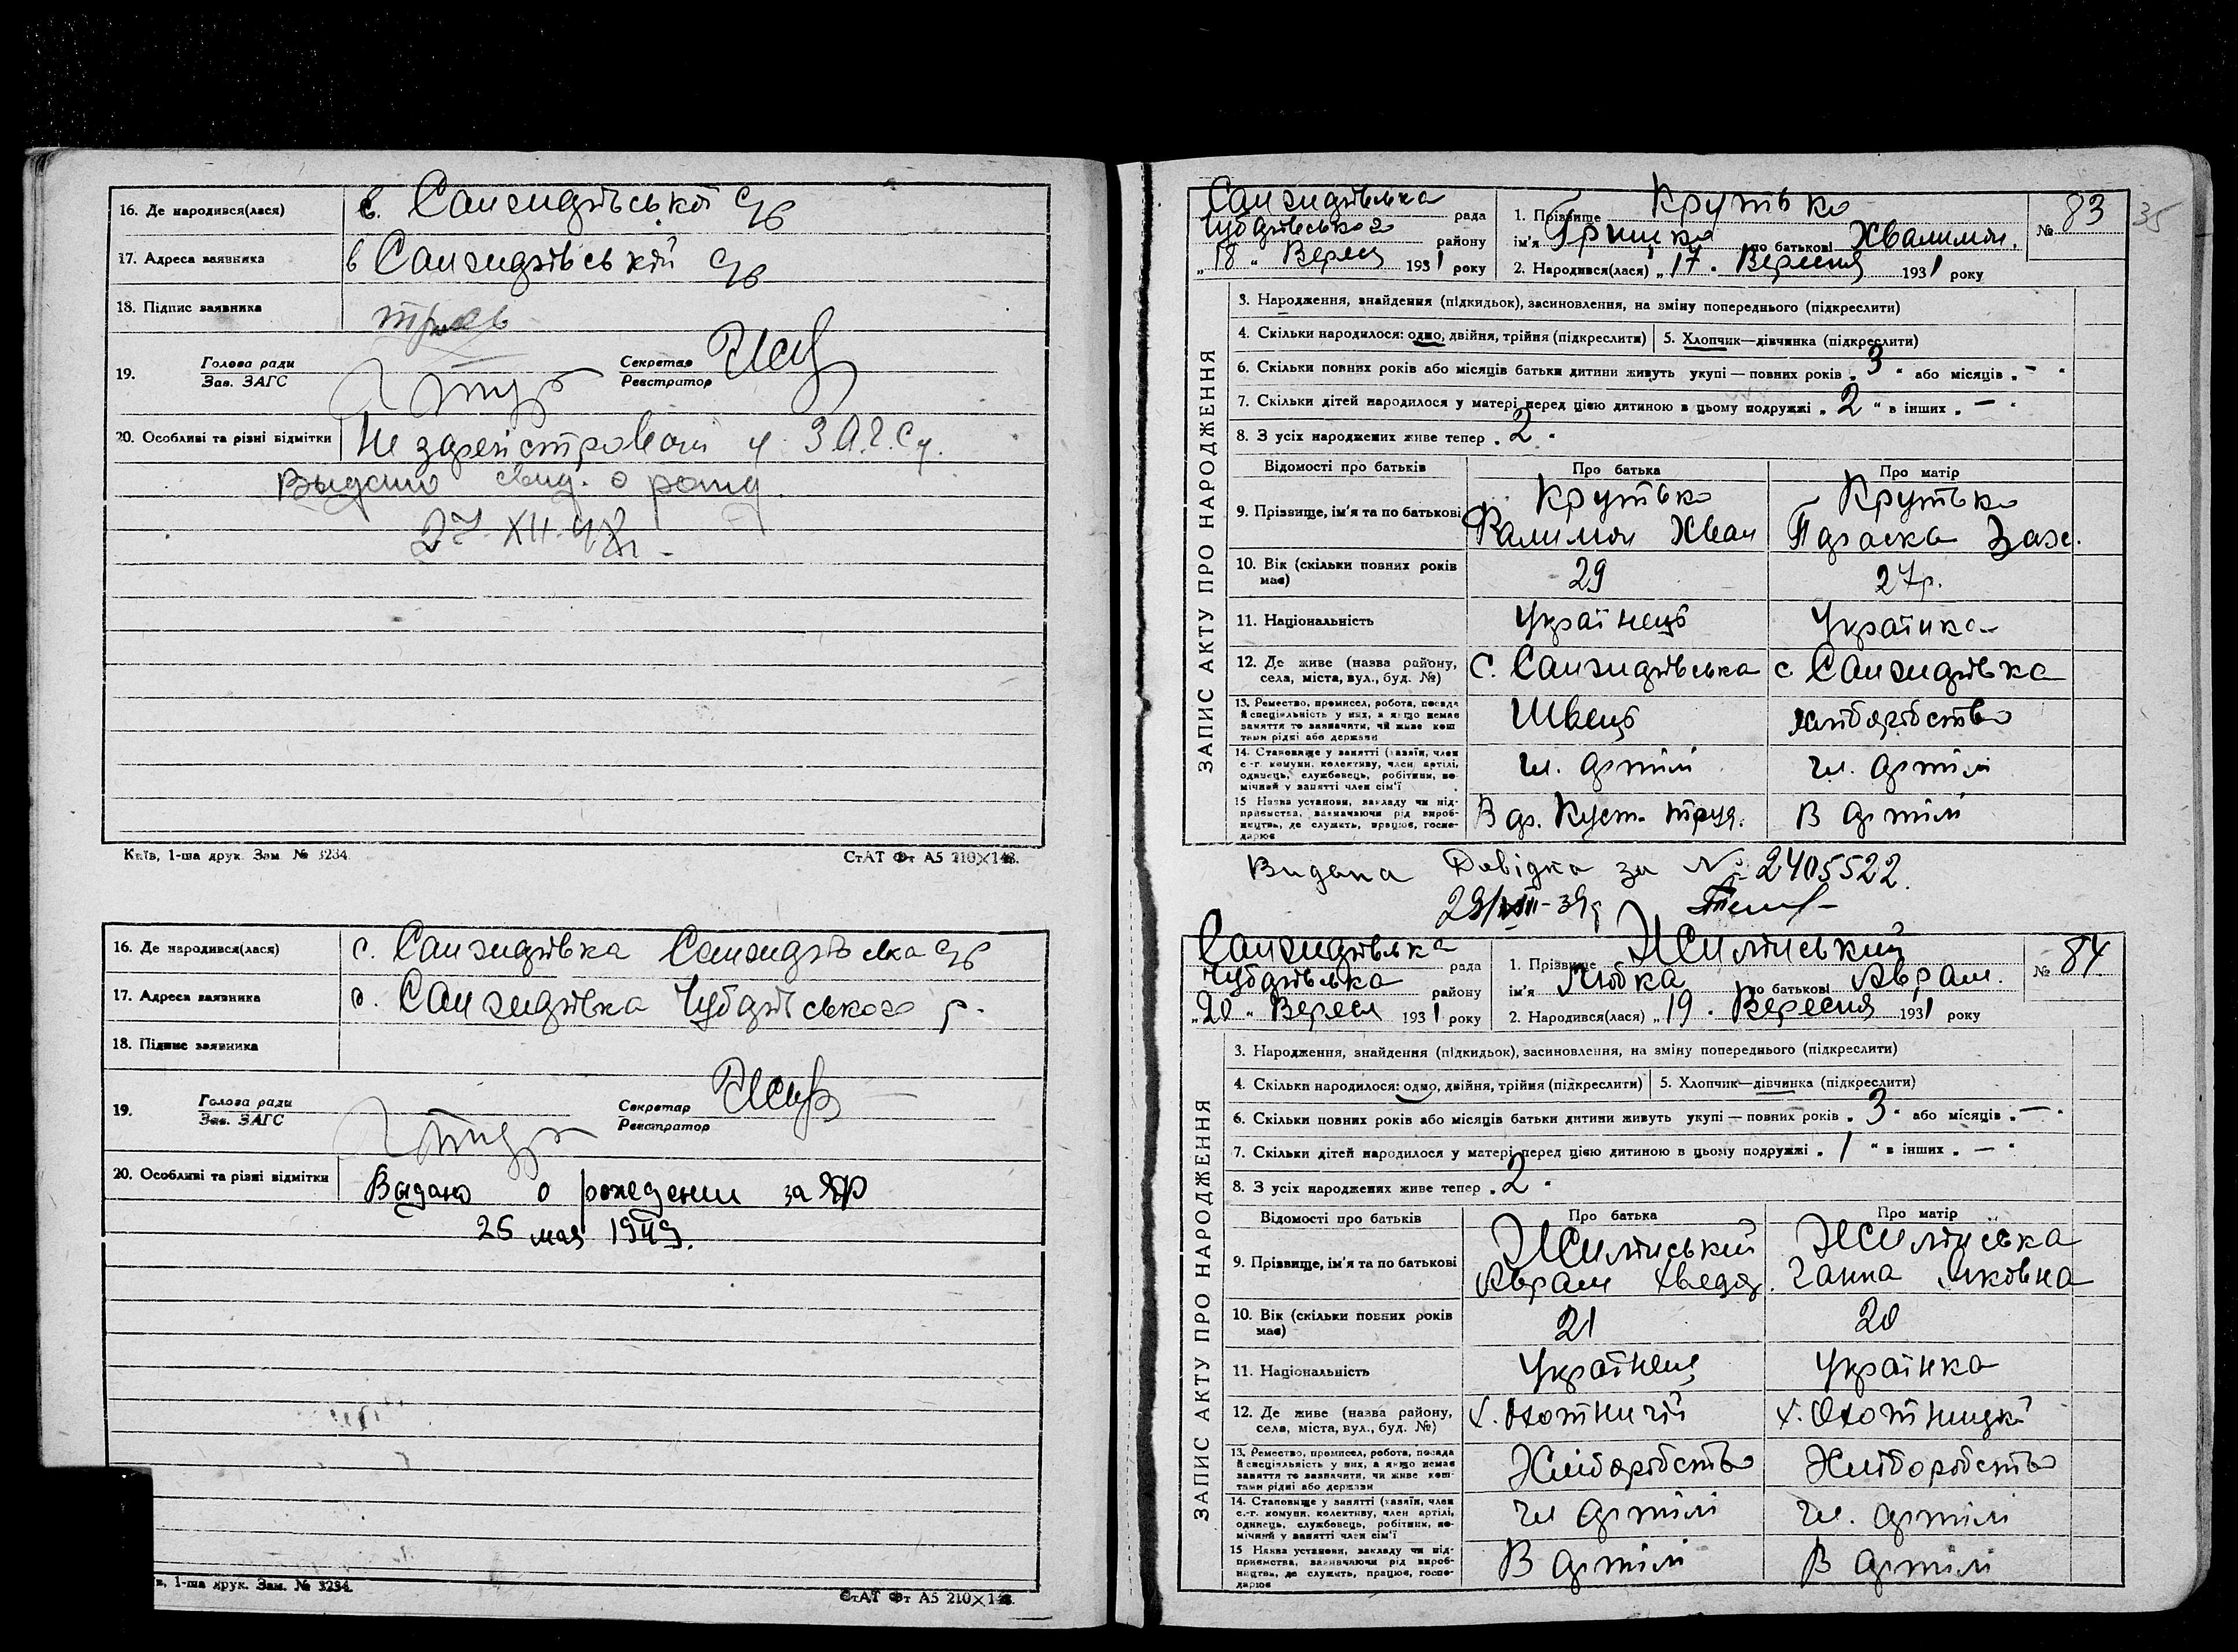 16. Де народився(лася)
в. Санжидрівської
17. Адреса заявника
в Санжидрівській
18. Підпис заявника
19. Голова ради
Зав. ЗАГС
Секретар
Реєстратор
20. Особливі та різні відмітки
Не зареєстровані у ЗАГСу.
Выдано свид. о рожд.
27-XII-47г.
Київ, 1-ша друк. Зам. № 3234.
СтАТ Фт А5 210×148.
16. Де народився(лася)
с. Санжидрівка Санжидрівська
17. Адреса заявника
с. Санжидрівка Чубарівського р.
18. Підпис заявника
19. Голова ради
Зав. ЗАГС
Секретар
Реєстратор
20. Особливі та різні відмітки
Выдано о рождении за ЯР
25 мая 1949.
в, 1-ша друк. Зам. № 3234.
СтАТ Фт А5 210×148.
35
ЗАПИС АКТУ ПРО НАРОДЖЕННЯ
Санжидрівська рада
Чубарівського району
„18" Вересн 1931 року
1. Прізвище Крутько
ім'я Грицко по батькові Хвалимон.
2. Народився(лася) „17. Вересня 1931 року
№ 83
3. Народження, знайдення (підкидьок), засиновлення, на зміну попереднього (підкреслити)
4. Скільки народилося: одно, двійня, трійня (підкреслити)
5. Хлопчик—дівчинка (підкреслити)
6. Скільки повних років або місяців батьки дитини живуть укупі — повних років „3" або місяців „—"
7. Скільки дітей народилося у матері перед цією дитиною в цьому подружжі „2" в інших „—"
8. З усіх народжених живе тепер „2"
Відомості про батьків
Про батька
Про матір
9. Прізвище, ім'я та по батькові
Крутько
Хвалимон Хван
Крутько
Параска Зах.
10. Вік (скільки повних років має)
29
27р.
11. Національність
Українець
Українка
12. Де живе (назва району, села, міста, вул., буд. №)
С. Санжидрівська
с Санжидрівка
13. Ремество, промисел, робота, посада й спеціяльність у них, а якщо немає заняття то зазначити, чи живе коштами рідні або держави
Швець
хліборобство
14. Становище у занятті (хазяїн, член с.-г. комуни, колективу, член артілі, одинець, службовець, робітник, помічний у занятті член сім'ї
чл. артілі
чл. артілі
15 Назва установи, закладу чи підприємства, зазначаючи рід виробництва, де служить, працює, господарює
В ар. Куст. труд.
В артілі
Видана Довідка за № 2405522.
29/VIII-39р
ЗАПИС АКТУ ПРО НАРОДЖЕННЯ
Санжидрівська рада
Чубарівська району
„20" Вересн 1931 року
1. Прізвище Жилінський
ім'я Любка по батькові Аврам.
2. Народився(лася) „19. Вересня 1931 року
№ 84
3. Народження, знайдення (підкидьок), засиновлення, на зміну попереднього (підкреслити)
4. Скільки народилося: одно, двійня, трійня (підкреслити)
5. Хлопчик—дівчинка (підкреслити)
6. Скільки повних років або місяців батьки дитини живуть укупі — повних років „3" або місяців „—"
7. Скільки дітей народилося у матері перед цією дитиною в цьому подружжі „1" в інших „—"
8. З усіх народжених живе тепер „2"
Відомості про батьків
Про батька
Про матір
9. Прізвище, ім'я та по батькові
Жилінський
Аврам Хведор.
Жилінська
Ганна Яковна
10. Вік (скільки повних років має)
21
20
11. Національність
Українец
Українка
12. Де живе (назва району, села, міста, вул., буд. №)
х. Охотничій
х. Охотницкй
13. Ремество, промисел, робота, посада й спеціяльність у них, а якщо немає заняття то зазначити, чи живе коштами рідні або держави
Хліборобство
Хліборобство
14. Становище у занятті (хазяїн, член с.-г. комуни, колективу, член артілі, одинець, службовець, робітник, помічний у занятті член сім'ї
чл артілі
чл. артілі
15 Назва установи, закладу чи підприємства, зазначаючи рід виробництва, де служить, працює, господарює
В артілі
В артілі